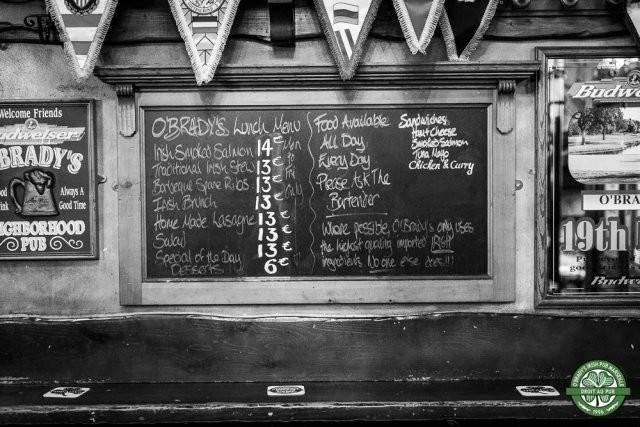 Welcome Friends
Budweiser
O'BRADY'S
Always A
Good Time
NEIGHBORHOOD
PUB
O'BRADY'S Lunch Menu
Mon to Fri Only
Irish Smoked Salmon 14€
Traditional Irish Stew 13€
Barbeque Spare Ribs 13€
Irish Brunch 13€
Home Made Lasagne 13€
Salad 13€
Special of the Day 13€
Desserts 6€
Food Available
All Day
Every Day
Please Ask The
Bartender
Where possible, O'Brady's only uses
the highest quality imported IRISH
ingredients. No one else does!!!
Sandwiches
Ham Cheese
Smoked Salmon
Tuna Mayo
Chicken & Curry
Budweiser
O'BRA
19th
DROIT AU PUB
1996